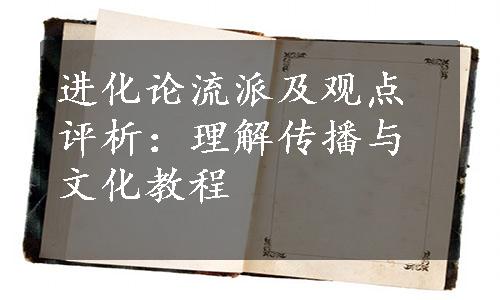 进化论流派及观点
评析：理解传播与
文化教程